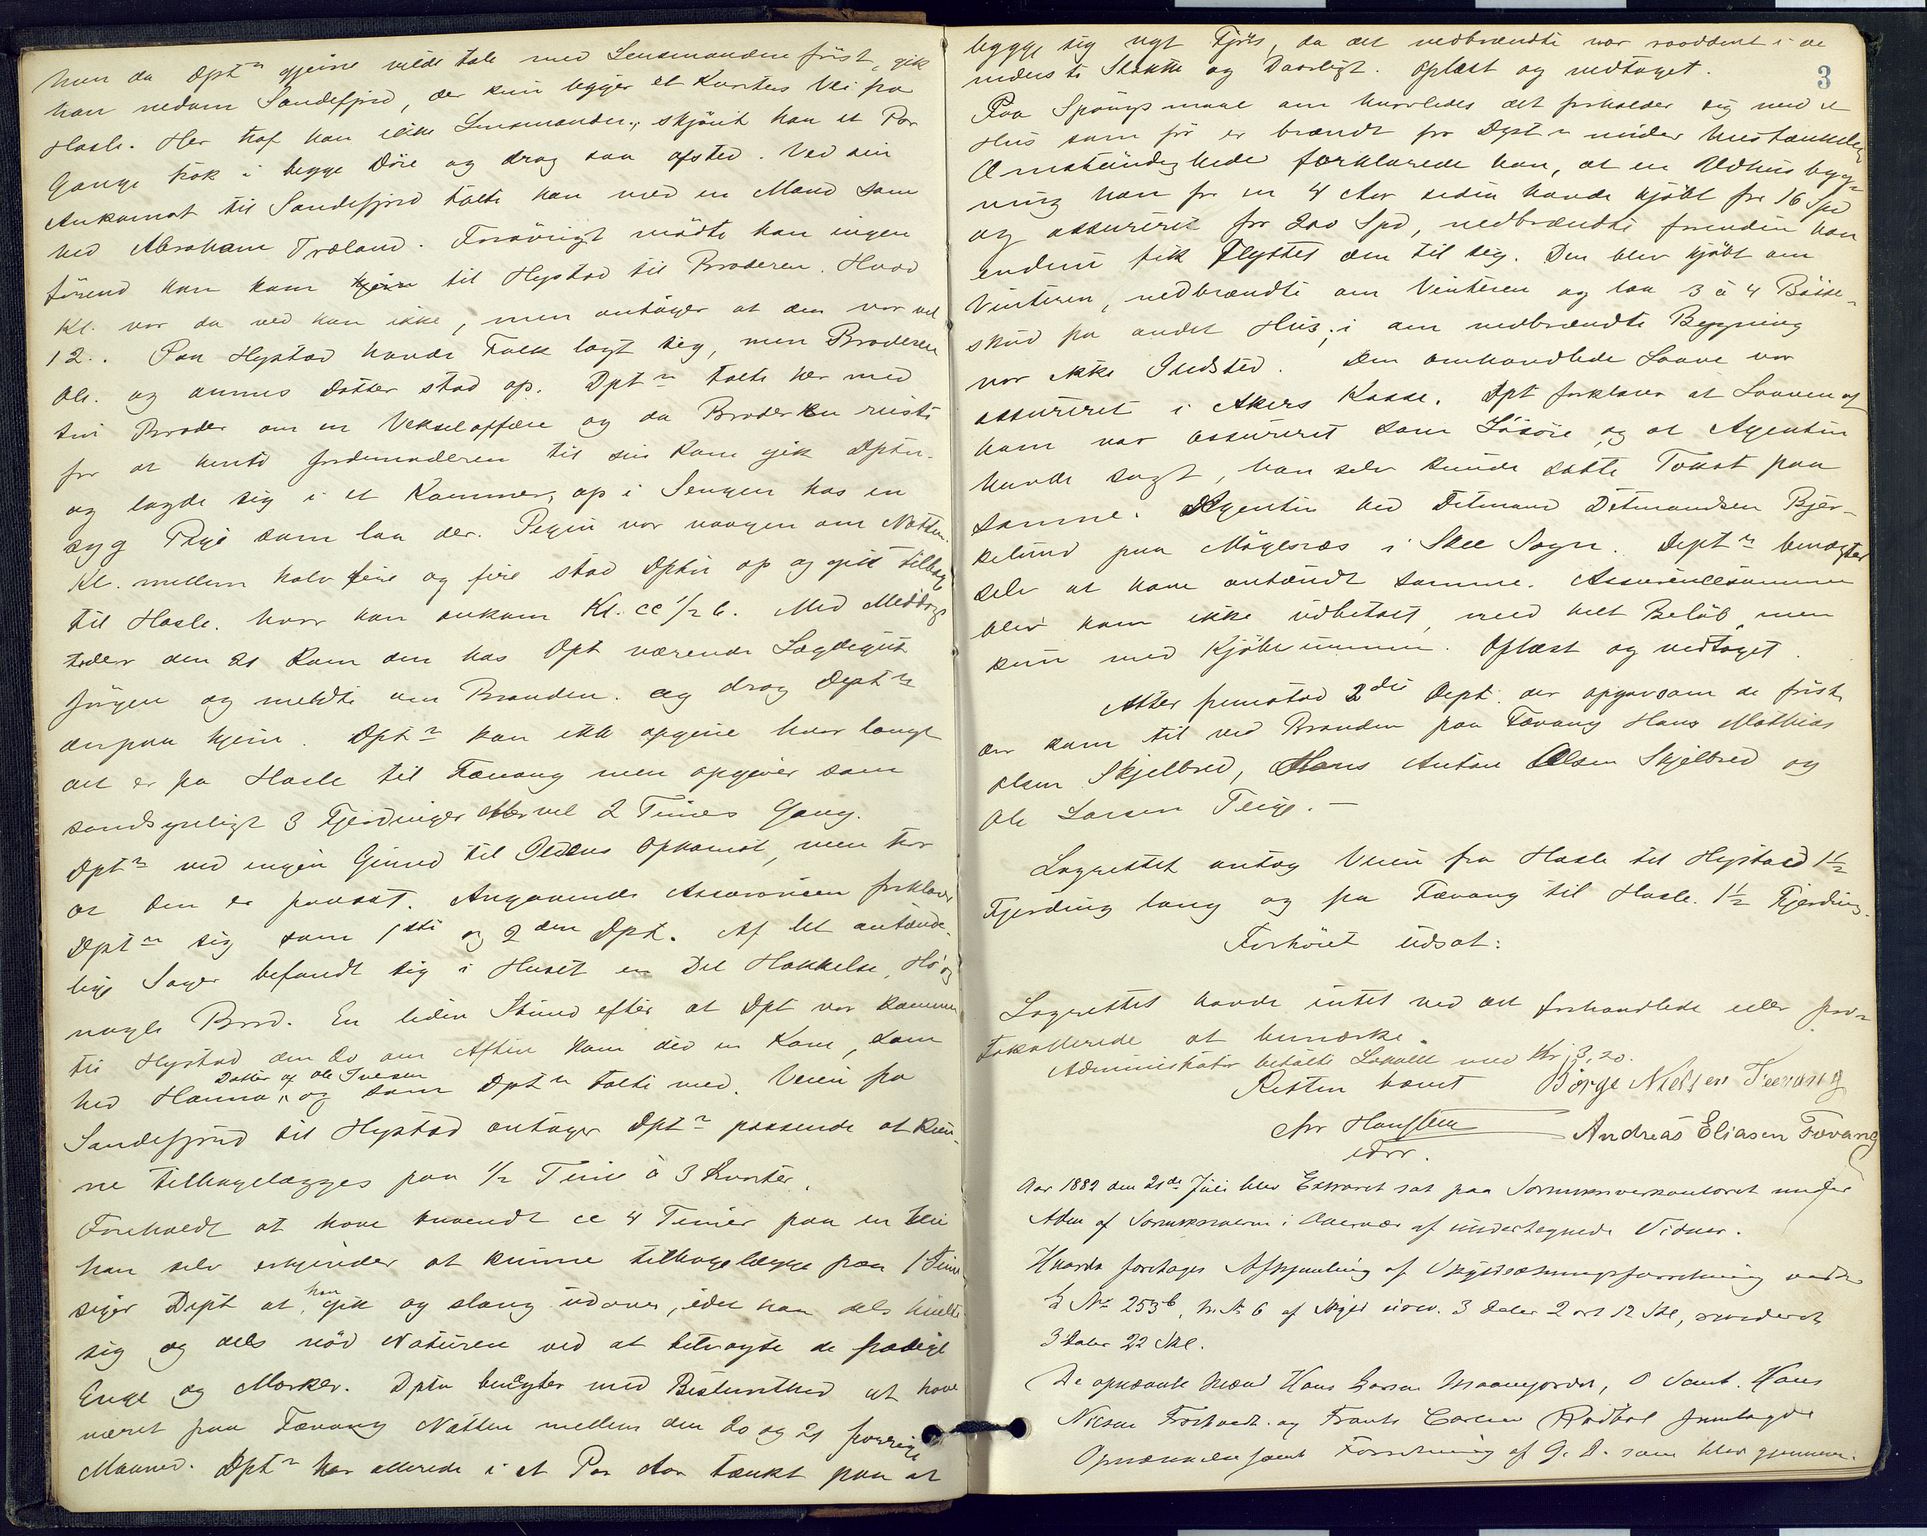 men da Dptn gjerne vilde tale med Lensmanden först, gik
han nedom Sandefjord, der kun ligger et Kvarters Vei fra
Hasle. Her traf han ikke Lensmanden, skjönt han et Par
Gange tok i begge Döre og drog saa afsted. Ved sin
Ankomst til Sandefjord talte han med en Mand som
hed Abraham Træland. Forövrigt mödte han ingen
förend han kom til Hystad til Broderen. Hvad
Kl. var da ved han ikke, men antager at den var vel
12. Paa Hystad havde Folk lagt sig, men Broderen
Ole og dennes Datter stod op. Dptn talte her med
sin Broder om en Vekselaffære og da Broderen reiste
for at hente Jordemoderen til sin Kone gik Dptn.
og lagde sig i et Kammer, op i Sengen hos en
syg Pige som laa der. Pigen var vaagen om Natten.
Kl. mellem halv fire og fire stod Dptn op og gik tilbage
til Hasle. hvor han ankom Kl. cc 1/2 6. Med Middags
tider den 21 kom den hos Dpt værende Lægdegut
Jörgen og meldte om Branden. og drog Dptn
derpaa hjem. Dptn kan ikke opgive hvor langt
det er fra Hasle til Fævang men opgiver som
sandsynligt 3 Fjerdinger eller vel 2 Timers Gang.
Dptn ved ingen Grund til Ildens Opkomst, men tror
at den er paasat. Angaaende Assurancen forklarer
Dptn sig som 1ste og 2den Dpt. Af let antænde-
lige Sager befandt sig i Huset en Del Hakkelse, Hö og
nogle Bord. En liden Stund efter at Dpt var kommen
til Hystad den 20 om Aften kom der en Kone, som
Datter af Ole Iversen
hed Hanna, og som Dptn talte med. Veien fra
Sandefjord til Hystad antager Dptn passende at kun-
ne tilbagelægges paa 1/2 Time à 3 Kvarter.
Foreholdt at have anvendt cc 4 Timer paa en Vei
han selv erkjender at kunne tilbagelægge paa 1 Time
siger Dept at han gik og slang udover, idet han dels hvilte
sig og dels nöd Naturen ved at betragte de frodige
Enge og Marker. Dptn benegter med Bestemthed at have
været paa Fævang Natten mellem den 20 og 21 forrige
Maaned. Dptn har allerede i et Par Aar tænkt paa at
3
bygge sig nyt Fjös, da det nedbrændte var raaddent i de
nederste Stokke og Daarligt. Oplæst og vedtaget.
Paa Spörgsmaal om hvorledes det forholder sig med et
Hus som för er brændt for Dptn under mistænkelige
Omstændigheder forklarede han, at en Udhusbyg-
ning han for en 4 Aar siden havde kjöbt for 16 Spd
og assureret for 200 Spd, nedbrændte forinden han
endnu fik flyttet den til sig. Den blev kjöbt om
Vinteren, nedbrændte om Vinteren og laa 3 à 4 Bösse-
skud fra andet Hus; i den nedbrændte Bygning
var ikke Ildsted. Den omhandlede Laave var
assureret i Akers Kasse. Dpt forklarer at Laaven af
ham var assureret som Lösöre og at Agenten
havde sagt, han selv kunde sætte Takst paa
samme. Agenten hed Ditmand Ditmandsen Bjer-
kelund paa Mögesnes i Skee Sogn. Deptn benægter
selv at have antændt samme. Assurancesummen
blev ham ikke udbetalt, med helt Belöb, men
kun med Kjöbesummen. Oplæst og vedtaget.
Atter fremstod 2den Dept. der opgav som de först
der kom til ved Branden paa Fævang Hans Mathias
Olsen Skjelbred, Hans Anton Olsen Skjelbred og
Ole Larsen Feige. –
Lagrettet antog Veien fra Hasle til Hystad 1 1/2
Fjerding lang og fra Fævang til Hasle. 1 1/2 Fjerding.
Forhöret udsat:
Lagrettet havde intet ved det forhandlede eller pro-
tokollerede at bemærke.
Administrator betalte Lokalet med Kr 3,20.
Retten hævet Börge Nielsen Feevang
Chr Hanssen Andreas Eliasen Fævang
Aar 1882 den 21de Juli blev Extraret sat paa Sorenskriverkontoret under
Aden af Sorenskriveren i Overvær af undertegnede Vidner.
Hvorda foretages Afhjemling af Udskiftningsforretning vedr
G No 253b, L. N 6 af Skjee 3 Daler 2 ort 12 Skl, revideret
3 Daler 22 Skl.
De opnævnte Mænd Hans Larsen Maanejordet, O Samt. Hans
Nilsen Frostvedt og Frants Carlsen Rödböl fremlagde
Opnævnelse samt Forretning af G. D. som blev gjennem-